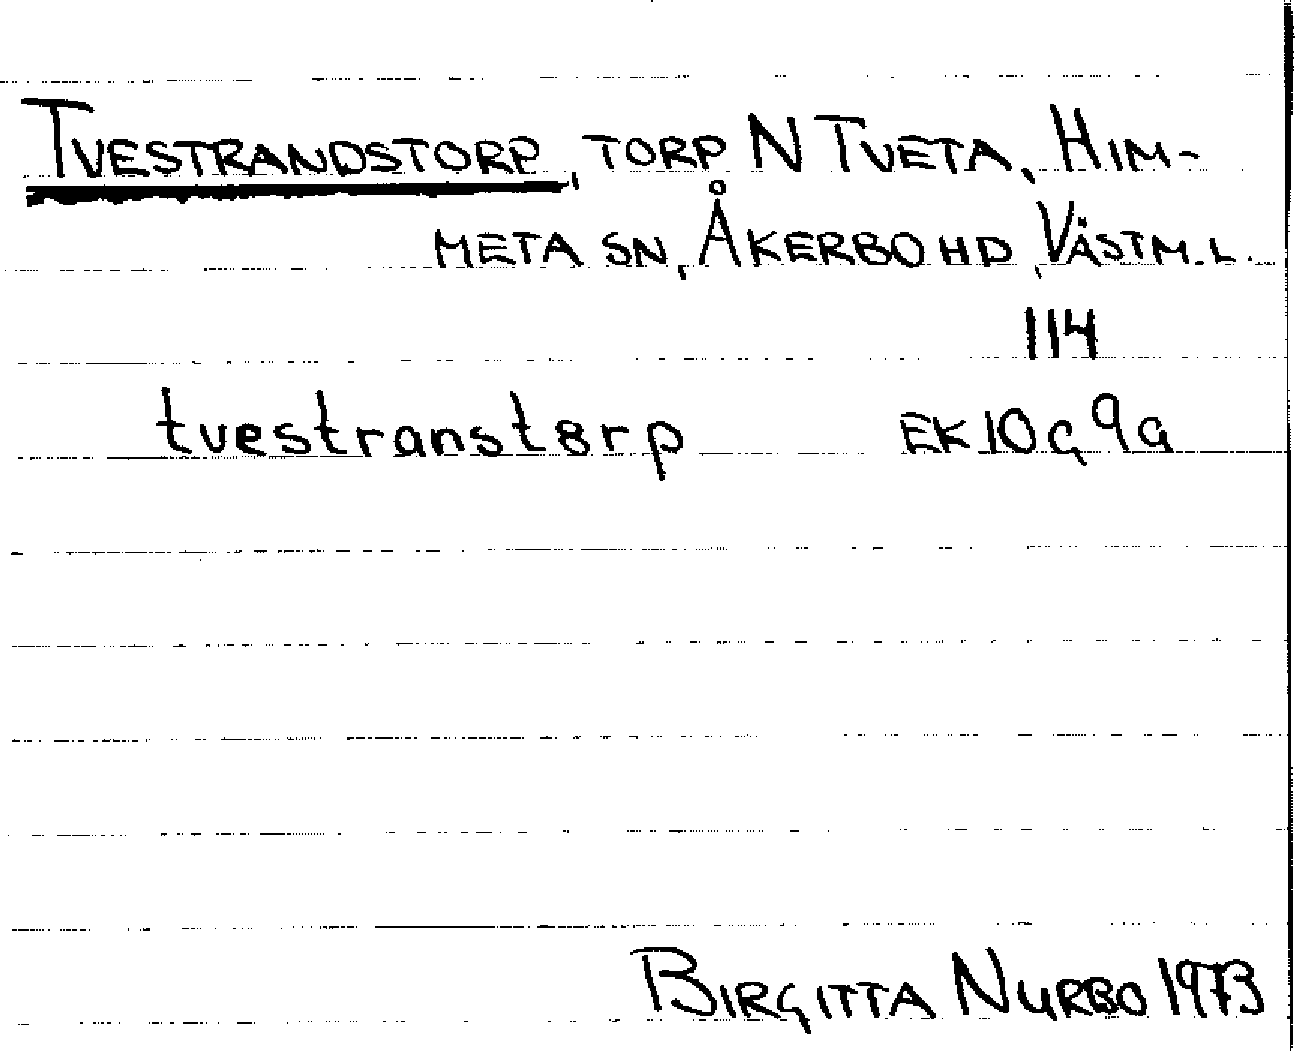 TVESTRANDSTORP, TORP N TVETA, HIM-
META SN, ÅKERBO HD, VÄSTM.L.
114
tvestranstȣrp EK 10G 9a
BIRGITTA NURBO 1973